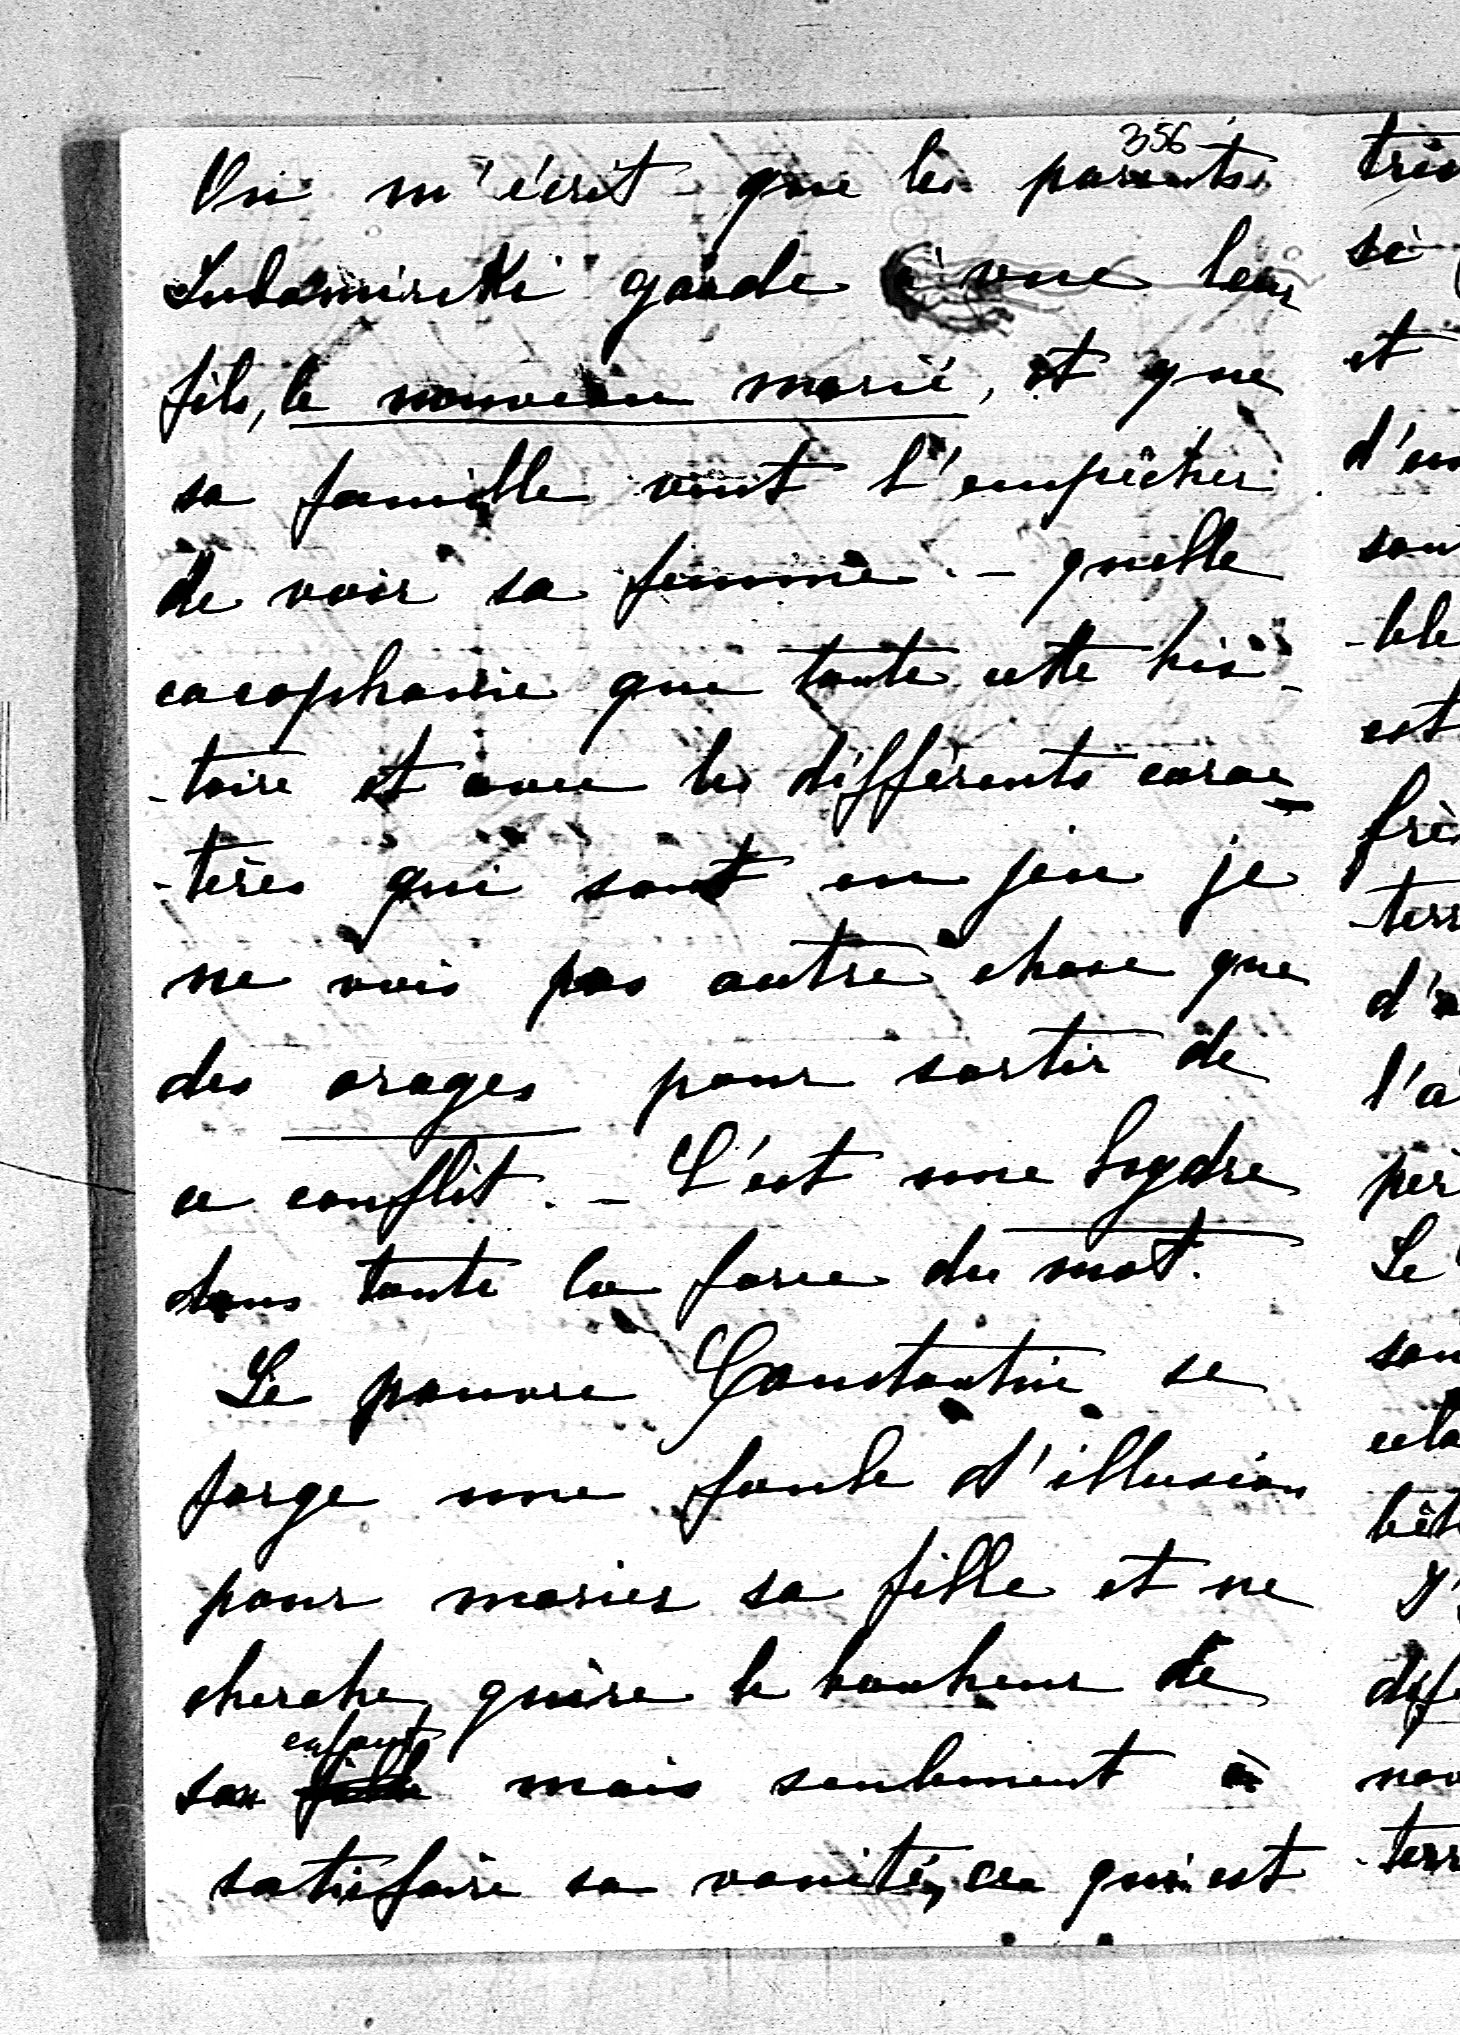 356
On m'écrit que les parents
Lubomirski garde à vue leur
fils, le nouveau marié, et que
sa famille veut l'empêcher
de voir sa femme. – quelle
cacophonie que toute cette his-
-toire et avec les différents carac-
-tères qui sont en jeu je
ne vois pas autre chose que
des orages pour sortir de
ce conflit. – C'est une hydre
dans toute la force du mot.
Le pauvre Constantin se
forge une foule d'illusion
pour marier sa fille et ne
cherche guère le bonheur de
enfant
son fille mais seulement à
satisfaire sa vanité, ce qui est
si
et
est
Le